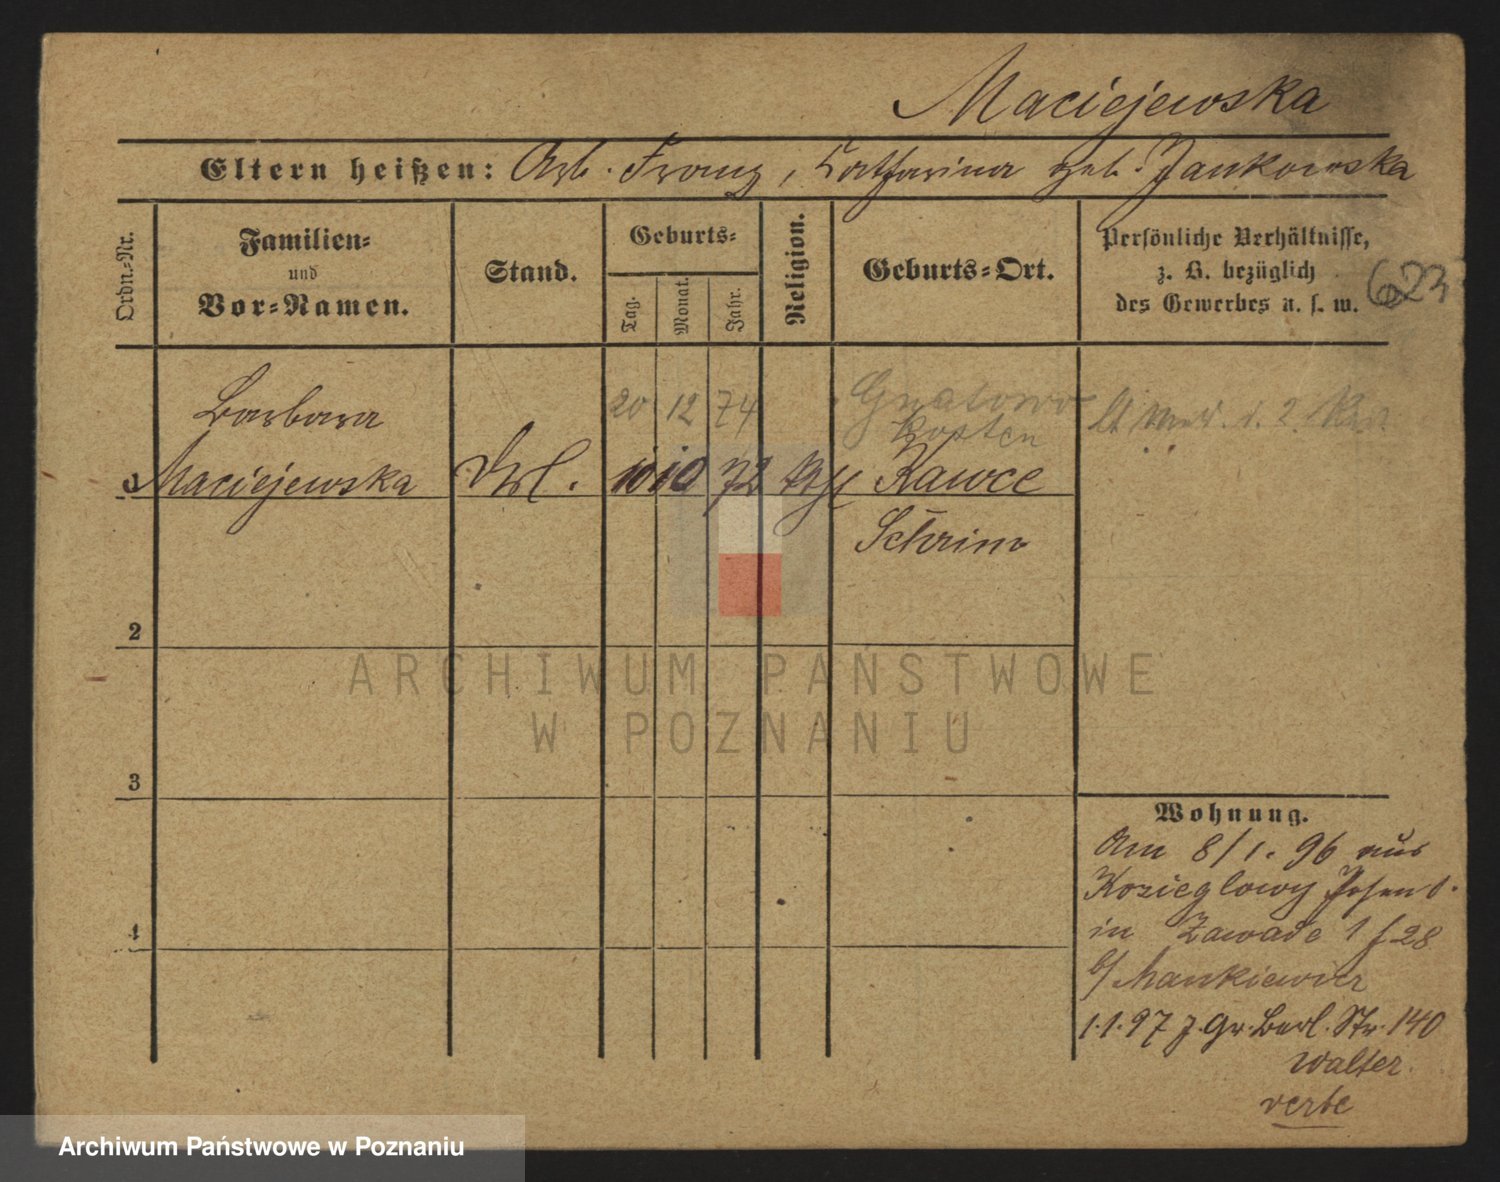 Maciejewska
Eltern heißen: Arb. Franz, Catharina geb. Jankowska
Ordn.-Nr.
Familien-
und
Vor-Namen.
Stand.
Geburts-
Tag.
Monat.
Jahr.
Religion.
Geburts-Ort.
Persönliche Verhältnisse,
z. B. bezüglich
des Gewerbes u. s. w.
623
Barbara
20 12 74
Gnatowo
Kosten
1 Maciejewska
10 10 72
Kawce
Schrim
2
3
4
ARCHIWUM PAŃSTWOWE
W POZNANIU
Wohnung.
Am 8/1. 96 aus
Kozieglowy Posen O.
in Zawade 1 f 28
b/ Mankiewicz
1.1.97 z. Gr. Berl. Str. 140
Walter
Archiwum Państwowe w Poznaniu